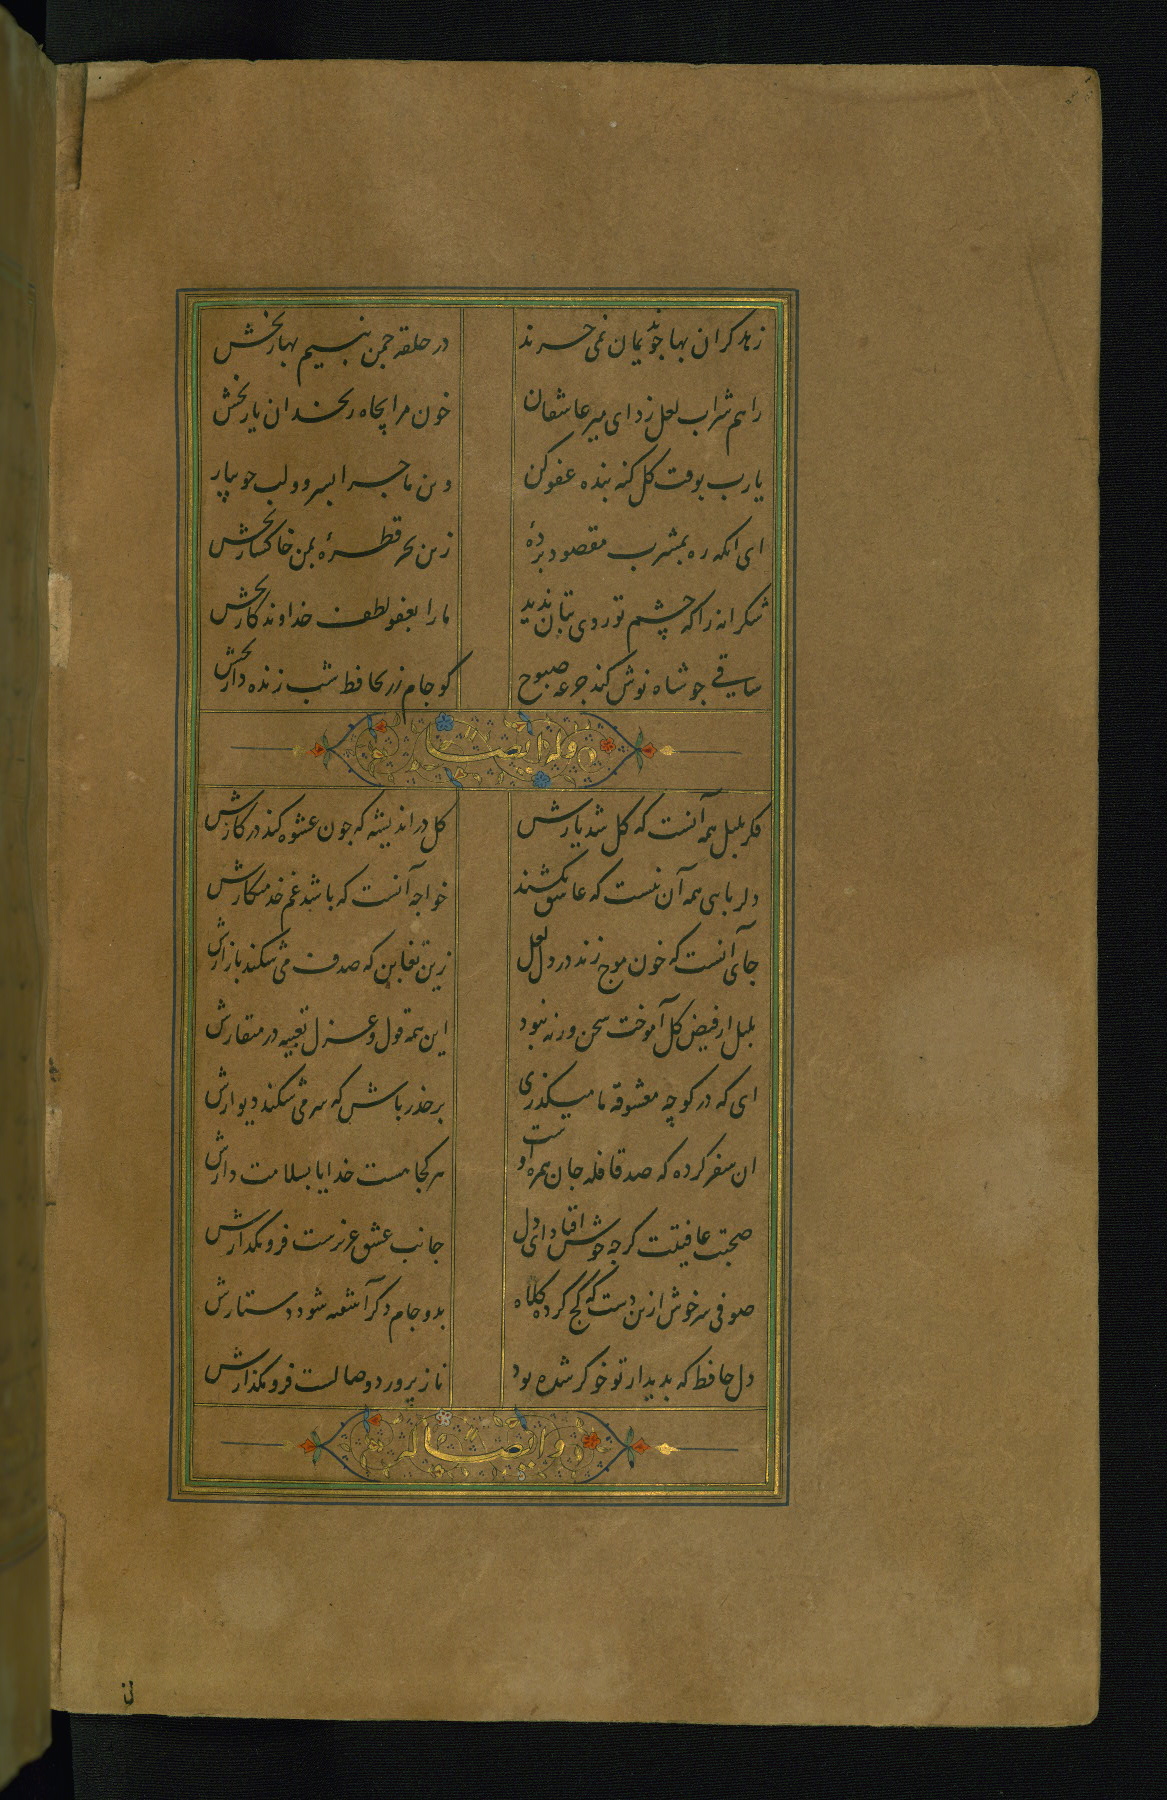 زهد کران بها جوندیمان نمی خرند در حلقه جمن بنسیم بهار بخش
راهم شراب لعل زد ای میر عاشقان خون مرا بجاه زنخدان یار بخش
یارب بوقت کل کنه بنده عفو کن وین ماجرا بسرو و لب جویبار
ای انکه ره بمشرب مقصود بردهٔ زین بحر قطرهٔ بمن خاکسار بخش
شکرانه را که چشم تو روی بتان ندید ما را بعفو لطف خداوند کار بخش
ساقی جو شاه نوش کند جرعه صبوح کو جام زر بحافظ شب زنده دار بخش
وله ایضا
فکر بلبل همه آنست که کل شد یارش کل در اندیشه که جون عشوه کند در کارش
دلربایی همه آن نیست که عاشق بکشند خواجه آنست که باشد غم خدمتکارش
جای آنست که خون موج زند در دل لعل زین تغابن که صدف می شکند بازارش
بلبل از فیض کل آموخت سخن ورنه نبود این همه قول و غزل تعبیه در منقارش
ای که در کوچه معشوقه ما میکذری برحذر باش که سر می شکند دیوارش
ان سفر کرده که صد قافله جان همره اوست هر کجا هست خدایا بسلامت دارش
صحبت عافیتت کرجه خوش افتاد ای دل جانب عشق عزیزست فرو مکذارش
صوفی سرخوش ازین دست که کج کرده کلاه بدو جام دکر آشفته شود دستارش
دل حافظ که بدیدار تو خوکر شده بود ناز پرورد وصالست فرو مکذارش
وله ایضا